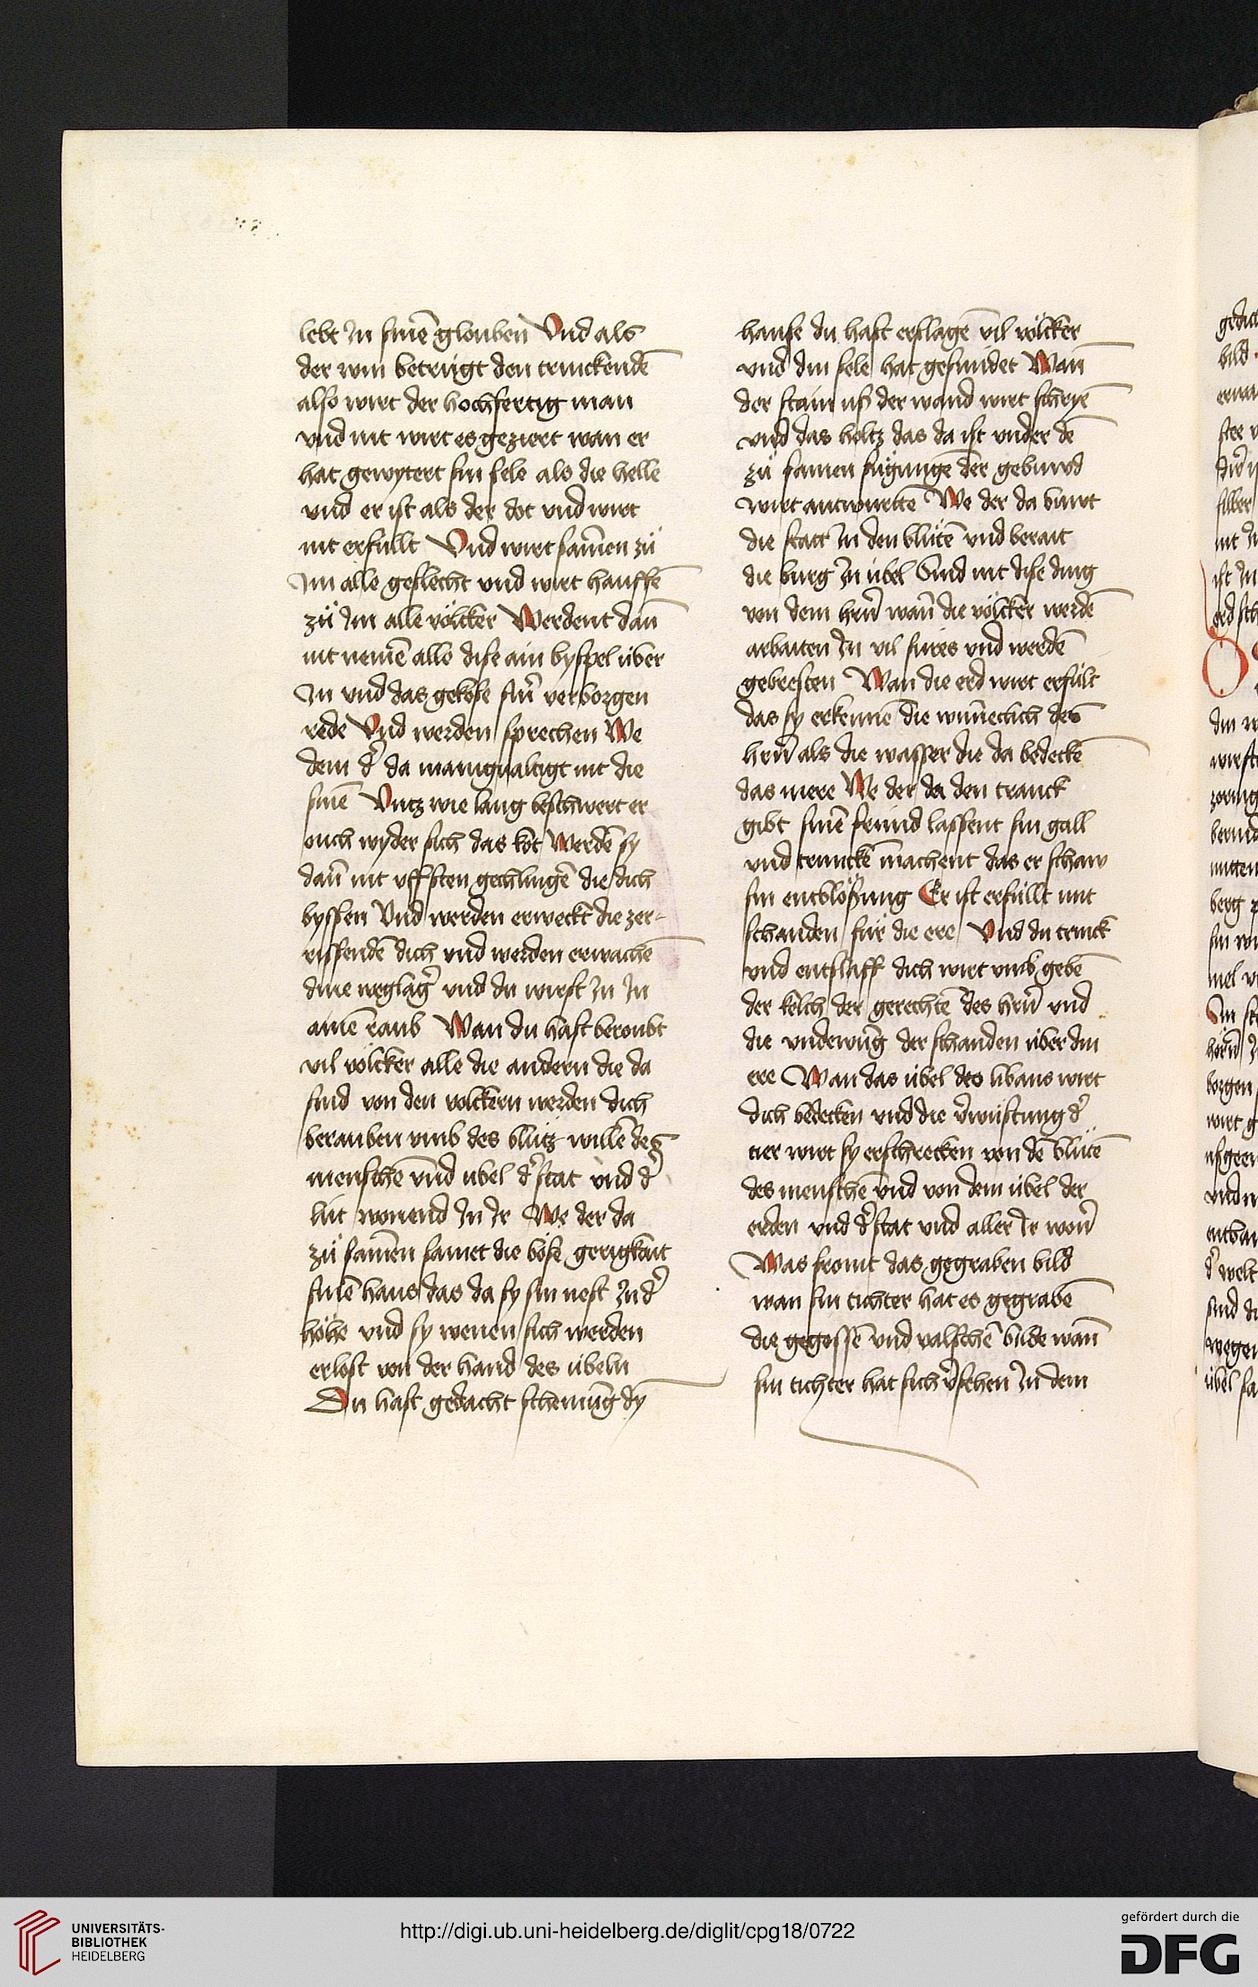 lebt Jn sinē glouben Vnd als
der win betrúgt den trinckendē
also wirt der hochfertig man
vnd nit wirt es geziert wan er
hat gewytert sin sele als die helle
vnd er ist als der dot vnd wirt
nit erfúllt Vnd wirt samen zů
Jm alle geslecht vnd wirt hauffē
zů Jm alle völcker Werdent dañ
nit nemē alle dise ain byspel über
Jn vnd das geköse sinr̄ verborgen
rede Vnd werden sprechen We
dem d' da manigualtigt nit die
sinē Vntz wie lang beschwert er
ouch wyder sich das kot Werdē sy
dañ nit vff sten gechlingē die dich
byssen Vnd werden erweckt die zer-
rissendē dich vnd werden erwachē
dine weglag' vnd du wirst Jn Jn
ainē raub Wan du hast beroubt
vil völcker alle die andern die da
sind von den völckern werden dich
berauben vmb des blůtz willē des
menschē vnd übel d' stat vnd d'
lút wonend Jn Jr We der da
zů samen samet die böse gerigkait
sinē haus das da sy sin nest Jn d'
höhe vnd sy wenen sich werden
erlöst von der hand des übeln
Du hast gedacht schemūg dȳ
hause du hast erslagē vil völcker
vnd din sele hat gesundet Wañ
der stain uß der wand wirt schryē
vnd das holtz das da ist vnder dē
zů samen fügunge der geburd
wirt antwurtē We der da buwt
die statt Jn den blůtē vnd berait
die burg Jn übel Sind nit dise ding
von dem herñ wañ die völcker werdē
arbaiten Jn vil fúres vnd werdē
gebresten Wan die erd wirt erfült
das sy erkennē die wunneclich des
herñ als die wasser die da bedeckē
das mere We der da den tranck
gibt sinē frúnd lassent sin gall
vnd trunckē machent das er schaw
sin entblößung Er ist erfüllt mit
schanden für die ere Vnd du trinck
vnd entslaff dich wirt vmb gebē
der kelch der gerechtē des herñ vnd
die vnderūg der schanden über din
ere Wan das übel des libans wirt
dich bedecken vnd die v'wüstung d'
tier wirt sy erschrecken von dē blůtē
des menschē vnd von dem übel der
erden vnd d' stat vnd aller Jr won'
Was fromt das gegraben bild
wan sin tichter hat es gegrabē
die gegossē vnd valschē bilde wañ
sin tichter hat sich v'sehen Jn dem
UNIVERSITÄTS-
BIBLIOTHEK
HEIDELBERG
http://digi.ub.uni-heidelberg.de/diglit/cpg18/0722
gefördert durch die
DFG